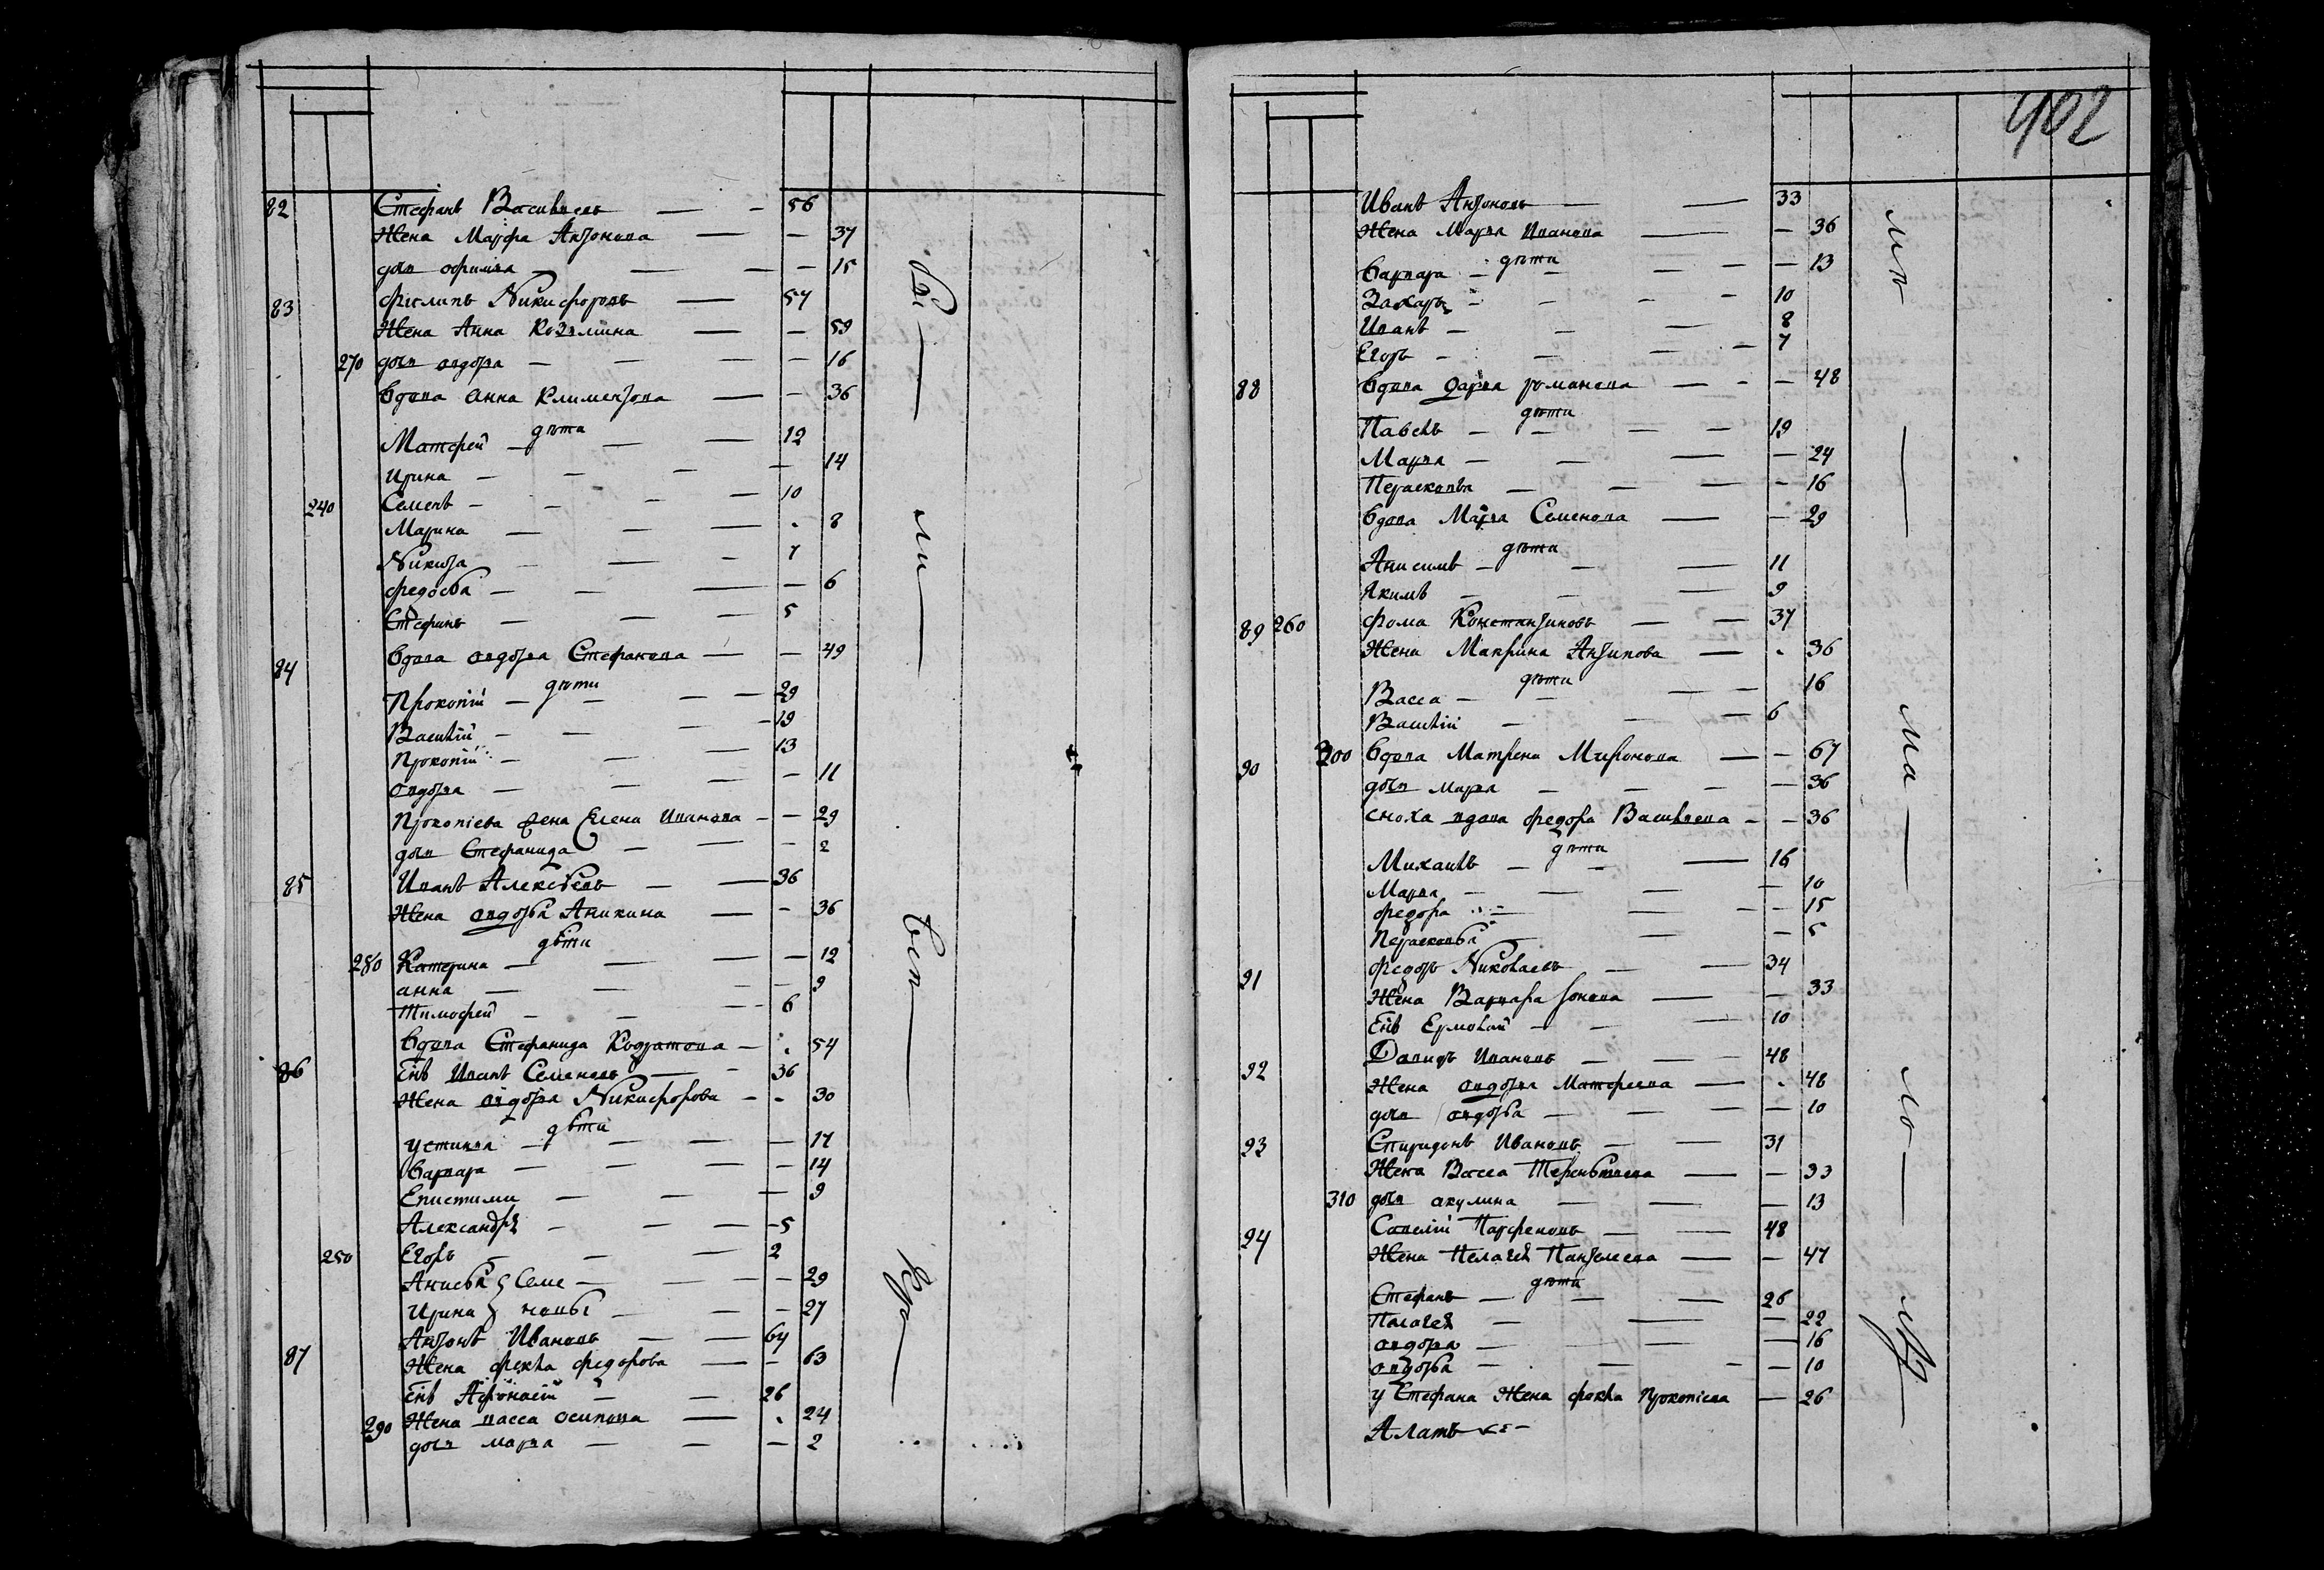 82 Стефанъ Васильевъ — 56
Жена Марѳа Антонова — 37
дочь Офимья — 15
83 Филипъ Никифоровъ — 57
Жена Анна Козьмина — 59
270 дочь Овдотья — 16
Вдова Анна Климентова — 36
дѣти
Матфей — 12
Ирина — 14
240 Семенъ — 10
Марина — 8
Никита — 7
Федосья — 6
Стефанъ — 5
84 Вдова Овдотья Стефанова — 49
дѣти
Прокопій — 29
Василій — 19
Прокопій — 13
Овдотья — 11
Прокопіева жена Елена Иванова — 29
дочь Стефанида — 2
85 Иванъ Алексѣевъ — 36
Жена Овдотья Аникина — 36
дѣти
280 Катерина — 12
Анна — 9
Тимофей — 6
Вдова Стефанида Кодратова — 54
86 Снъ Иванъ Семеновъ — 36
Жена Овдотья Никифорова — 30
дѣти
Устинья — 17
Варвара — 14
Епистими — 9
Александръ — 5
250 Егоръ — 2
Анисья Семе — 29
Ирина новы — 27
87 Антонъ Ивановъ — 64
Жена Фекла Федорова — 63
Снъ Афонасій — 26
290 Жена Васса Осипова — 24
дочь Марья — 2
402
Иванъ Антоновъ — 33
Жена Марья Иванова — 36
дѣти
Варвара — 13
Захаръ — 10
Иванъ — 8
Егоръ — 7
88 Вдова Дарья Романова — 48
дѣти
Павелъ — 19
Марья — 24
Перасковья — 16
Вдова Марья Семенова — 29
дѣти
Анисимъ — 11
Якимъ — 9
89 260 Фома Константиновъ — 37
Жена Макрина Антипова — 36
дѣти
Васса — 16
Василій — 6
90 300 Вдова Матрена Миронова — 67
дочь Марья — 36
сноха вдова Федора Васильева — 36
дѣти
Михаилъ — 16
Марья — 10
Федора — 15
Перасковья — 5
91 Федоръ Николаевъ — 34
Жена Варвара Ионова — 33
Снъ Ермолай — 10
92 Давидъ Ивановъ — 48
Жена Овдотья Матфеева — 48
дочь Овдотья — 10
93 Спиридонъ Ивановъ — 31
Жена Васса Терентьева — 33
310 дочь Окулина — 13
94 Савелій Парфеновъ — 48
Жена Пелагея Пантелеева — 47
дѣти
Стефанъ — 26
Палагея — 22
Овдотья — 16
Овдотья — 10
у Стефана Жена Фекла Прокопіева — 26